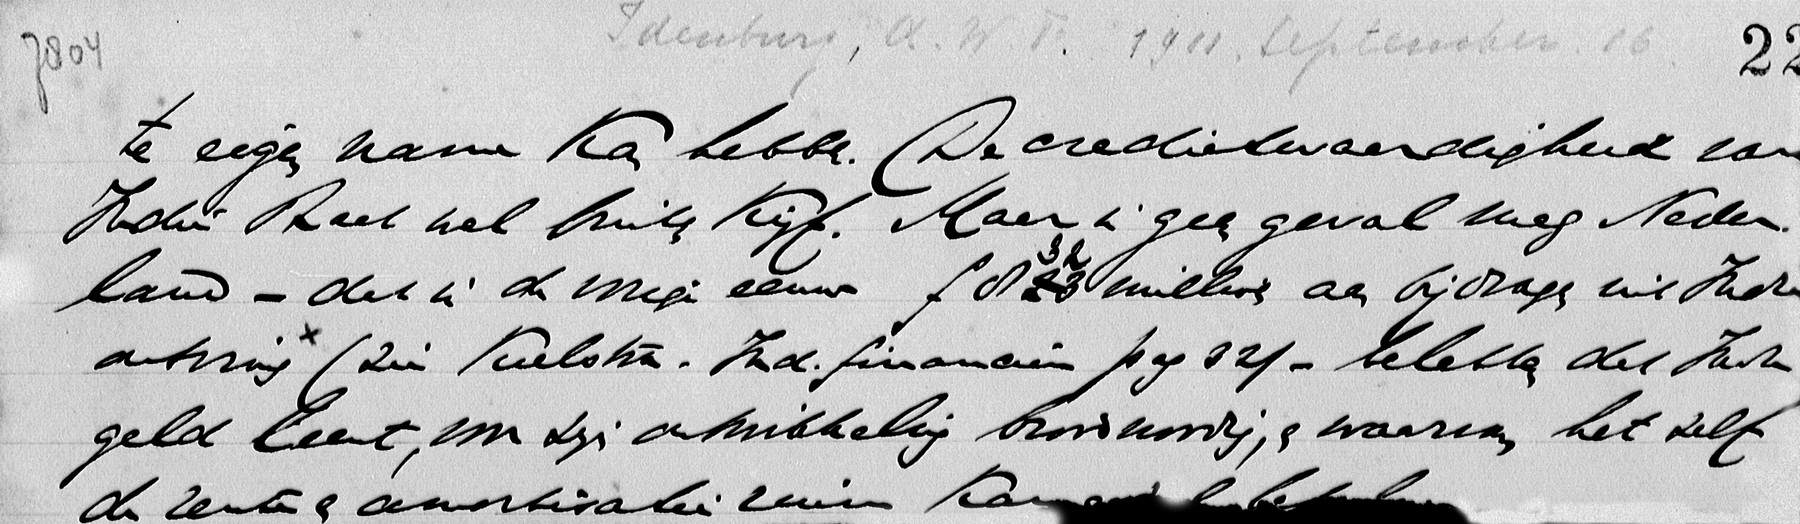 7804
Idenburg, A. W. F. 1911. September. 16.
22
te eigen name kan hebben. (De credietwaardigheid van
Indië staat wel buiten kijf. Maar in geen geval mag Neder-
land – dat in de vorige eeuw f 832 millioen aan bijdragen uit Indië
ontving x (zie Kielstra. Ind. financiën pag 32) – beletten dat Indië
geld leent, voor zijn ontwikkeling broodnoodig, en waarvan het zelf
de rente en amortisatie ruim kan